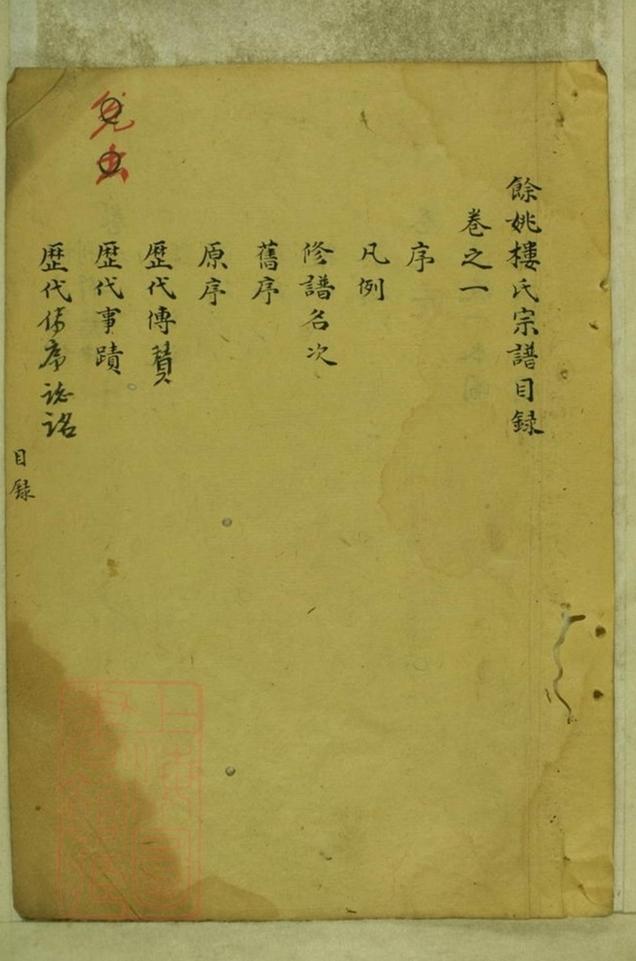 餘姚樓氏宗譜目録
卷之一
序
凡例
修譜名次
舊序
原序
歷代傳贊
歷代事蹟
歷代傳序誌銘
目録